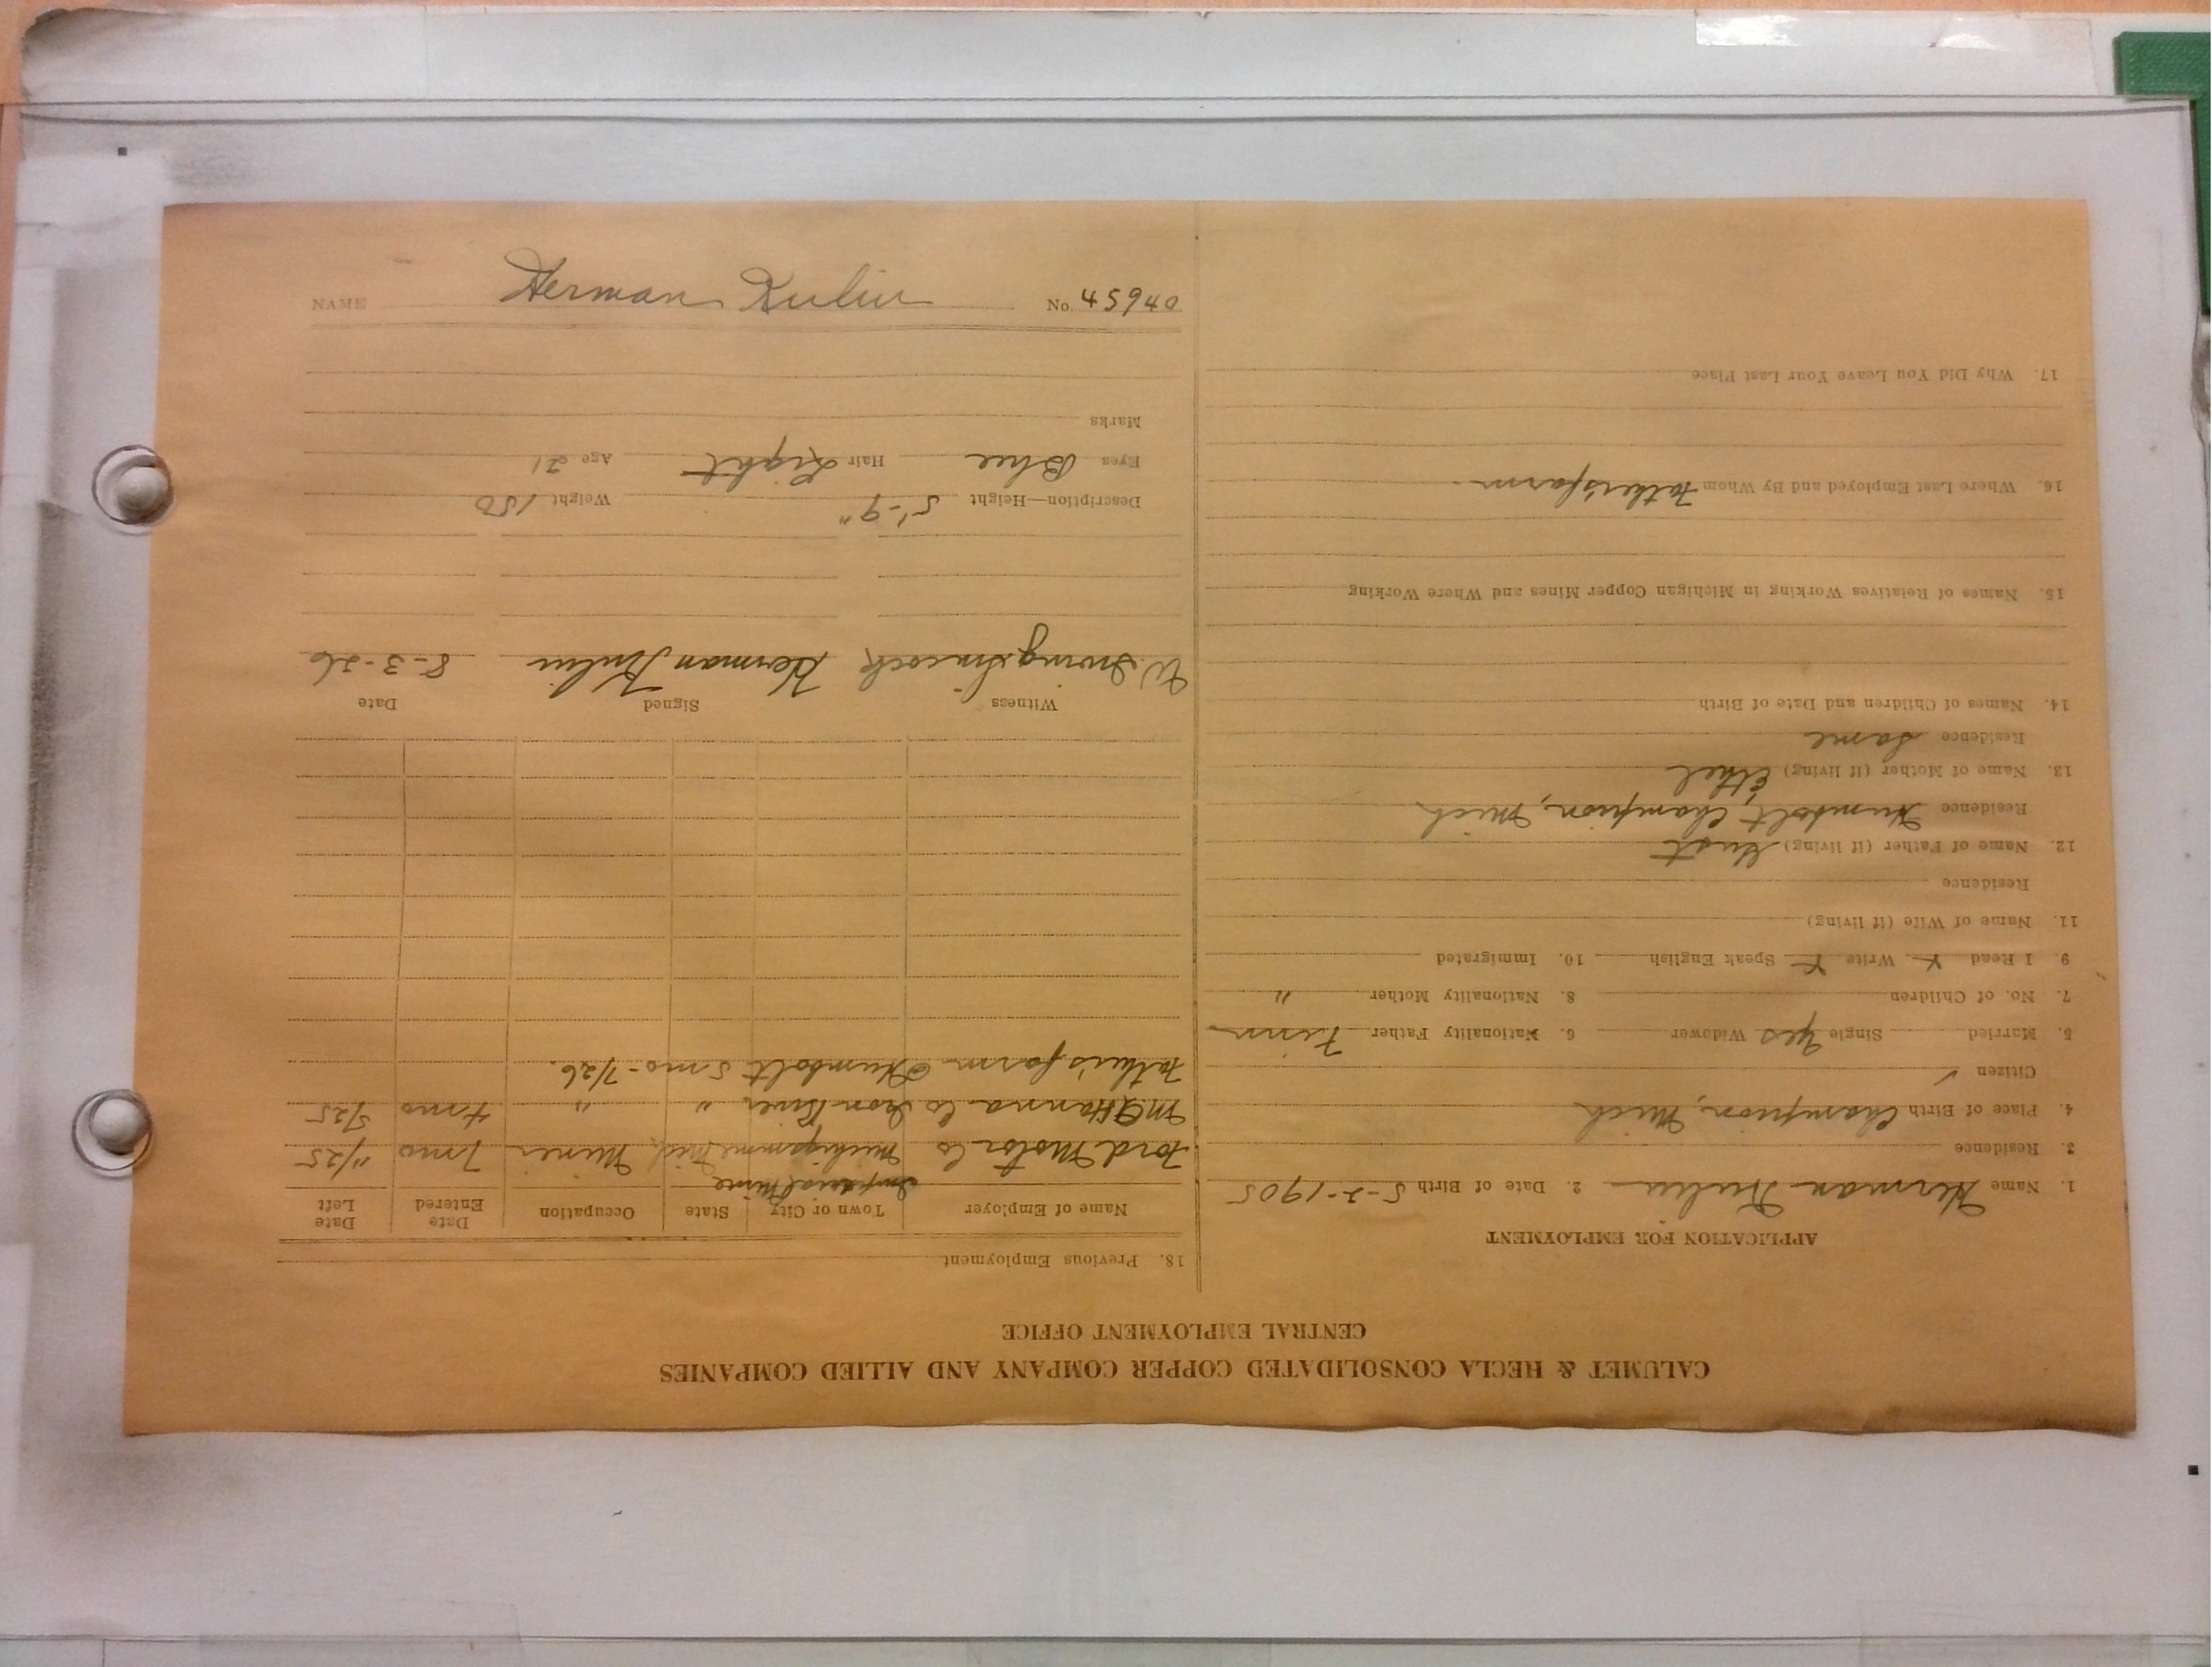 NAME Herman Kuliu No. 45940
CALUMET & HECLA CONSOLIDATED COPPER COMPANY AND ALLIED COMPANIES
CENTRAL EMPLOYMENT OFFICE
APPLICATION FOR EMPLOYMENT
1. Name Herman Kuliu 2. Date of Birth 5-2-1905
3. Residence
4. Place of Birth Champion, Mich
Citizen ✓
5. Married Single Yes Widower 6. Nationality Father Finn
7. No. of Children 8. Nationality Mother "
9. I Read Y Write Y Speak English 10. Immigrated
11. Name of Wife (if living)
Residence
12. Name of Father (if living) Gust
Residence Humbolt, Champion, Mich
13. Name of Mother (if living) Ethel
Residence Same
14. Names of Children and Date of Birth
15. Names of Relatives Working in Michigan Copper Mines and Where Working
16. Where Last Employed and By Whom Father's farm
17. Why Did You Leave Your Last Place
18. Previous Employment
Name of Employer Town or City State Occupation Date Entered Date Left
Imperial Mine
Ford Motor Co Michigamme Mich Miner 7 mo 11/25
M A Hanna Co Iron River " " 4 mo 5/25
Father's farm Humbolt 5 mo - 7/26.
Witness Signed Date
W. Irving Herman Kuliu 8-3-26
Description—Height 5'-9" Weight 150
Eyes Blue Hair Light Age 21
Marks